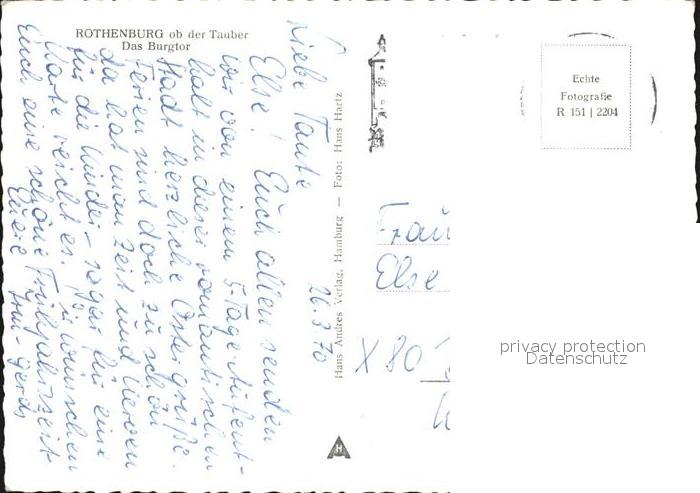 ROTHENBURG ob der Tauber
Das Burgtor
26.3.70
Liebe Tante
Else! Euch allen senden
wir von einem 5-Tage-Aufent-
halt in dieser romantischen
Stadt herzliche Ostergrüße.
Ferien sind doch zu schön
da hat man Zeit und Nerven
für die Kinder - sogar für eine
Karte reicht es. Wir wünschen
Euch eine schöne Frühjahrszeit
Eure
Hans Andres Verlag, Hamburg — Foto: Hans Hartz
H
Echte
Fotografie
R 151 | 2204
Frau
Else
X 80
privacy protection
Datenschutz